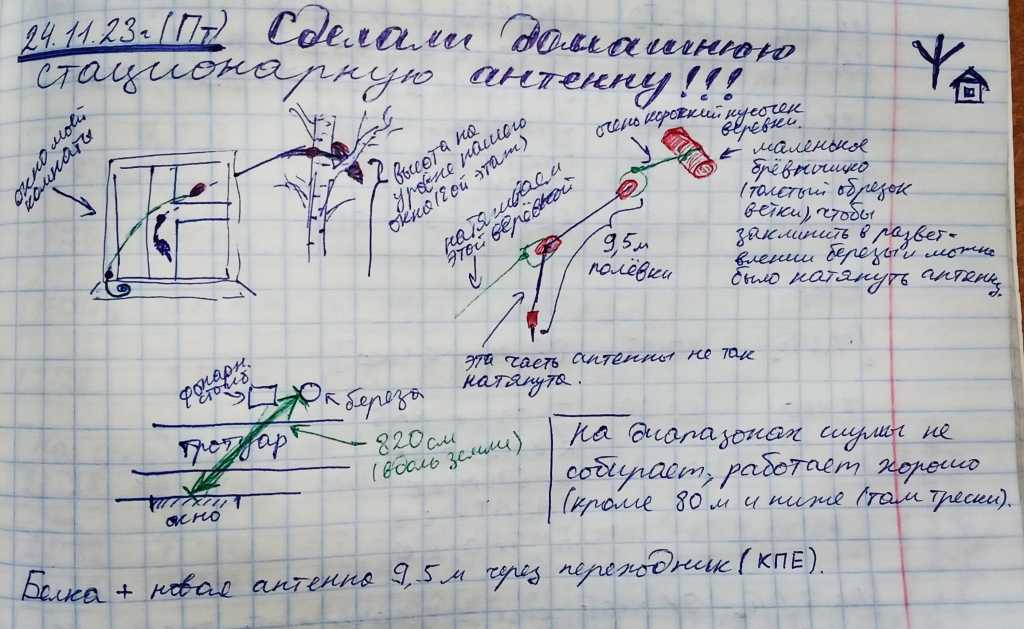 24.11.23г (Пт) Сделали домашнюю
стационарную антенну!!!
окно моей
комнаты
высота на
уровне нашего
окна (2ой этаж)
натягиваем
этой верёвкой
очень короткий кусочек
верёвки.
маленькое
брёвнышко
(толстый обрезок
ветки), чтобы
заклинить в развет-
влении березы и можно
было натянуть антенну.
9,5 м
полёвки
эта часть антенны не так
натянута.
фонарн.
столб
береза
тротуар
820 см
(вдоль земли)
окно
На диапазонах шумы не
собирает, работает хорошо
(кроме 80 м и ниже (там трески).
Белка + новая антенна 9,5 м через переходник (КПЕ).